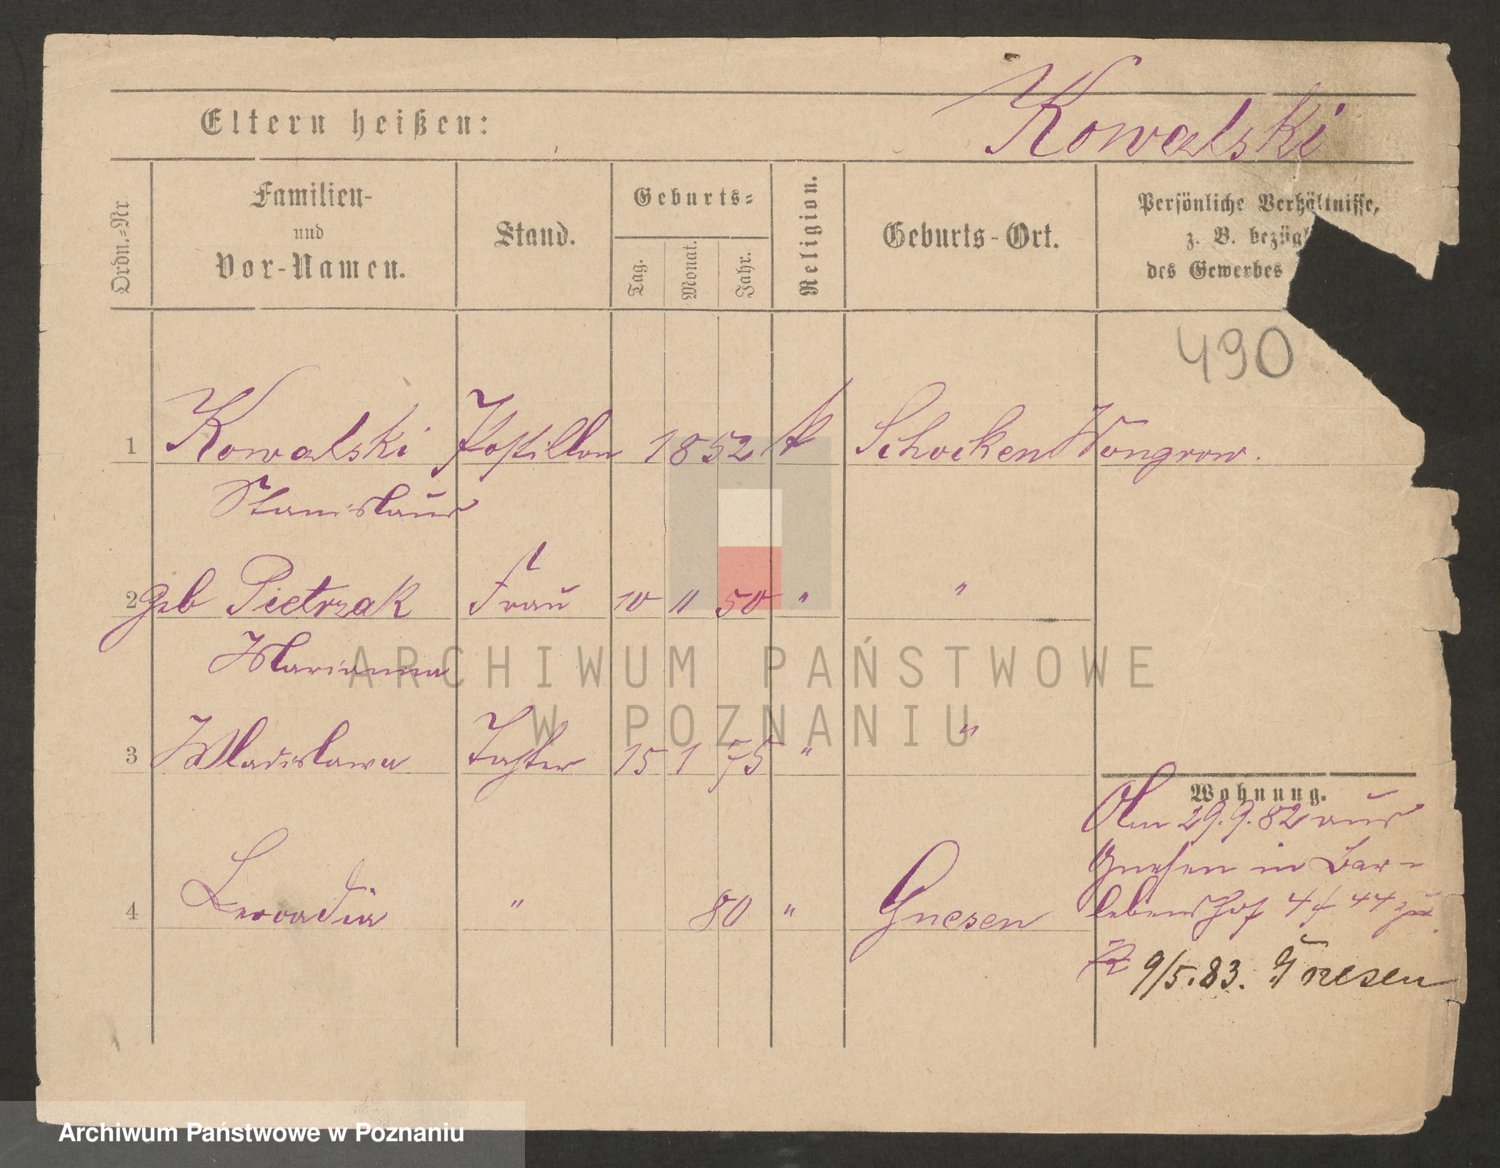 Kowalski
Eltern heißen:
Ordn.=Nr
Familien-
und
Vor-Namen.
Stand.
Geburts=
Tag.
Monat.
Jahr.
Religion.
Geburts-Ort.
Persönliche Verhältnisse,
z. B. bezügl
des Gewerbes
490
1 Kowalski Postillon 1852 k Schocken Wongrow.
Stanislaus
2 geb Pietrzak Frau 10 11 50 " "
Marianna
3 Wladislawa Tochter 15 1 75 " "
4 Leocadia " 80 " Gnesen
Wohnung.
Am 29.9.82 aus
Gnesen in Bar-
lebenshof 44 zu
9/5.83. Gnesen
ARCHIWUM PAŃSTWOWE
W POZNANIU
Archiwum Państwowe w Poznaniu